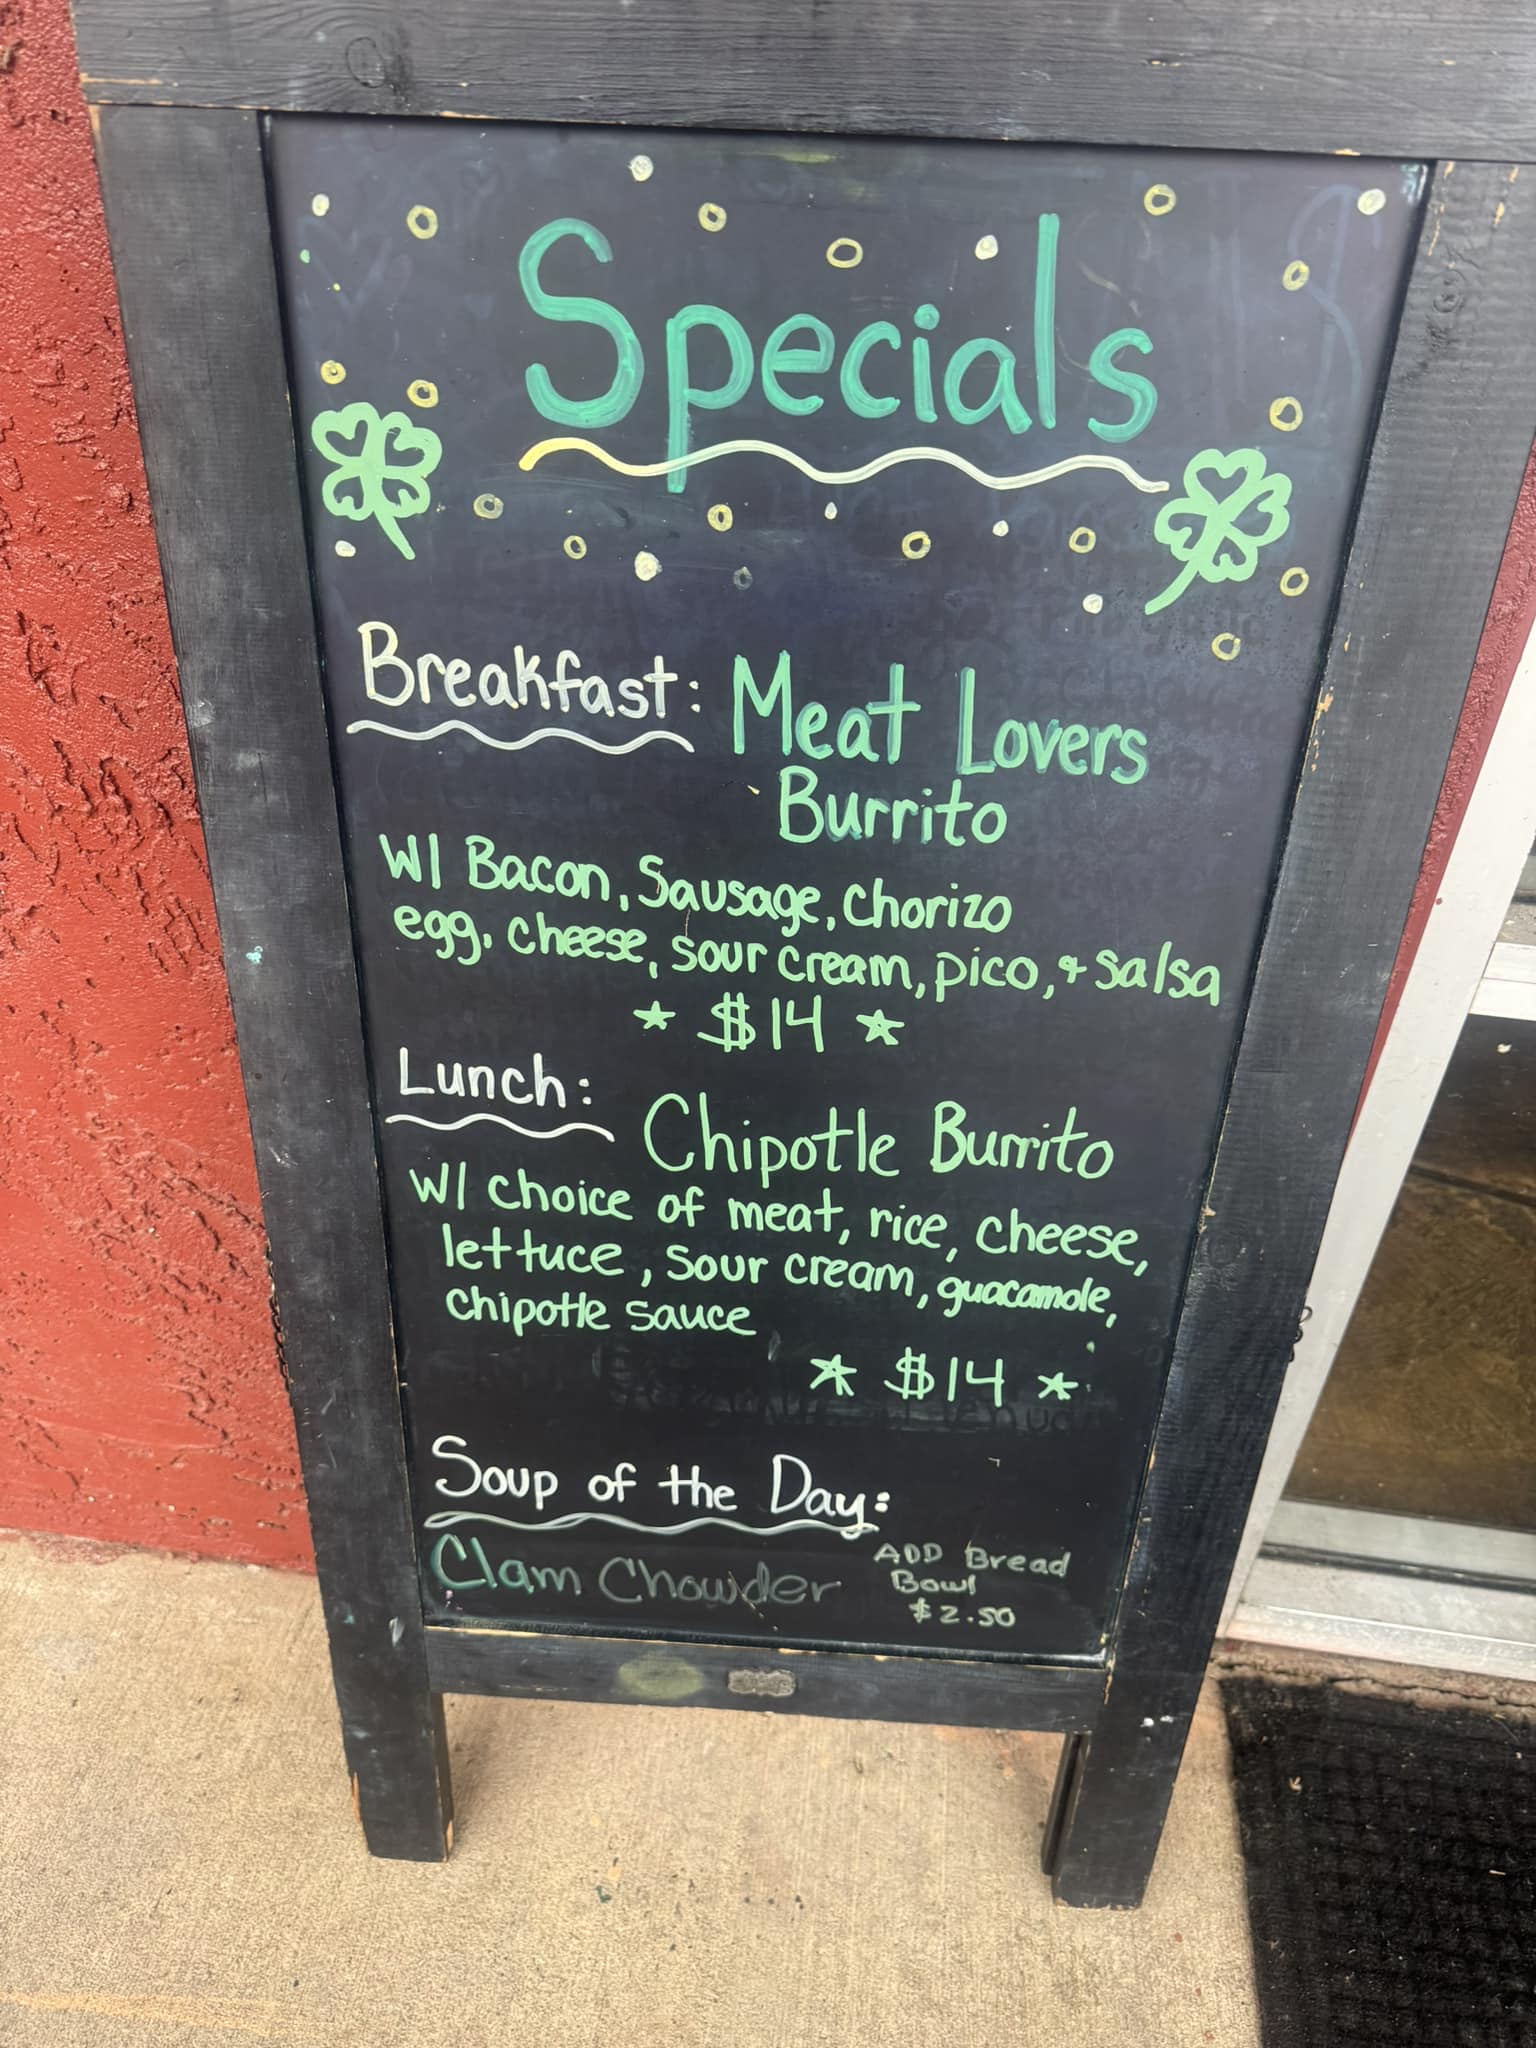 Specials
Breakfast: Meat Lovers
Burrito
W/ Bacon, Sausage, Chorizo
egg, cheese, sour cream, pico, & salsa
* $14 *
Lunch: Chipotle Burrito
W/ choice of meat, rice, cheese,
lettuce, sour cream, guacamole,
chipotle sauce
* $14 *
Soup of the Day:
Clam Chowder
ADD Bread
Bowl
$2.50